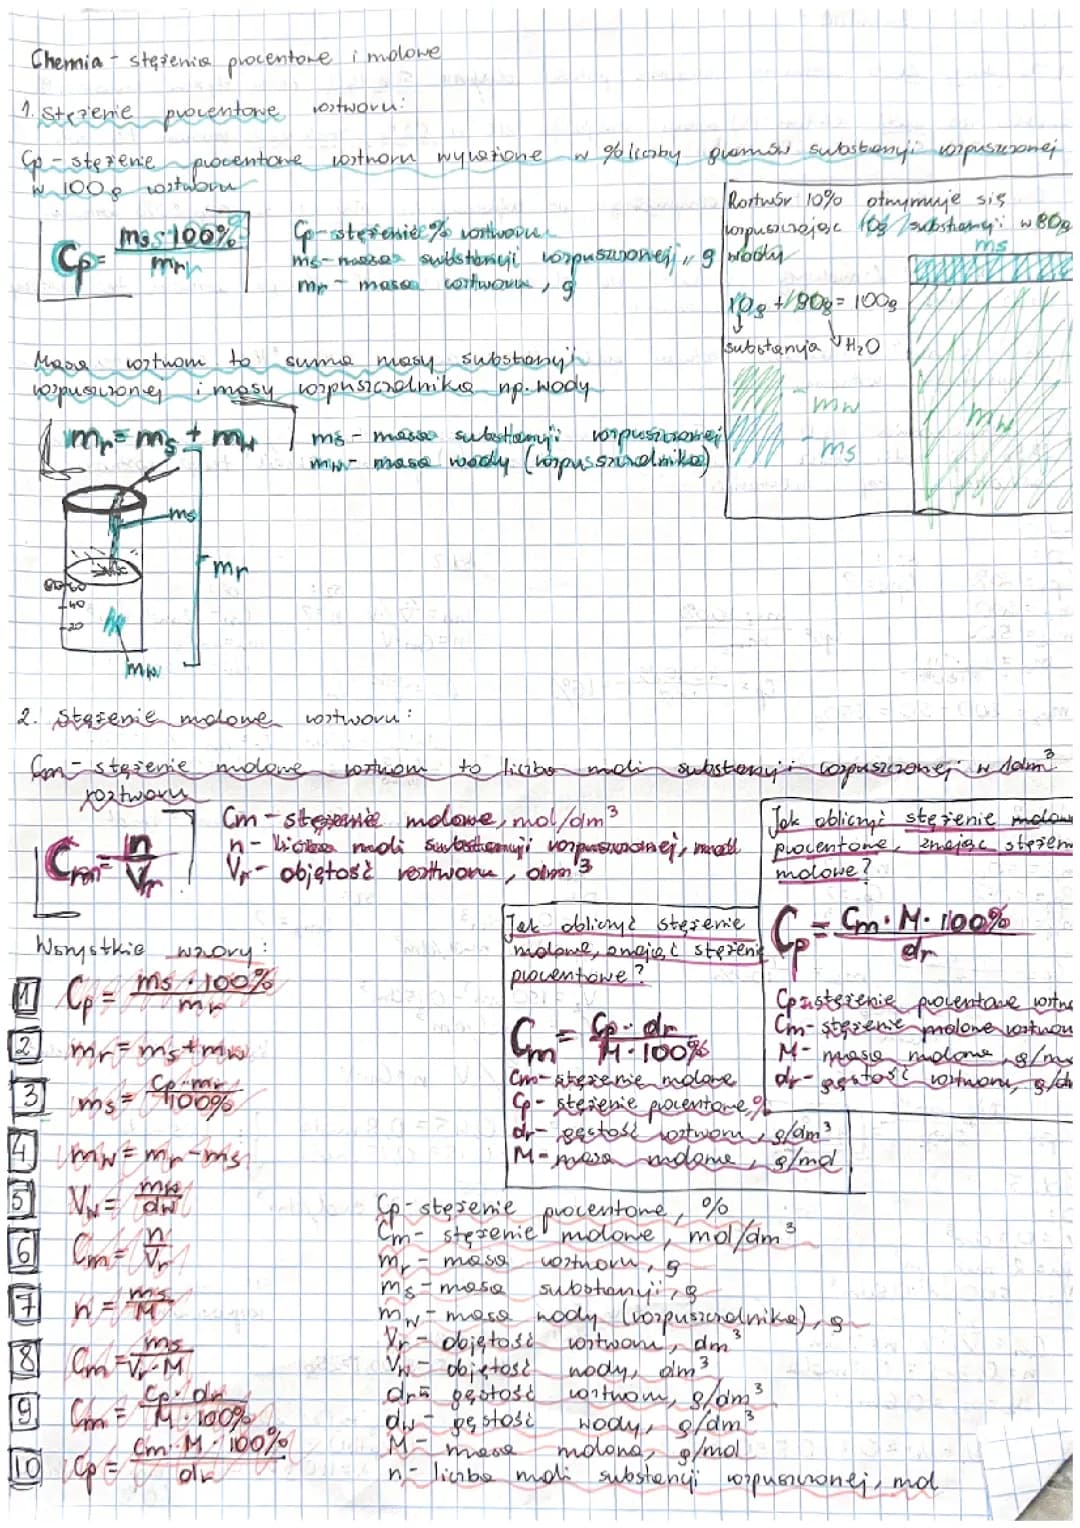 Chemia - stężenia procentowe i molowe
1. Stężenie procentowe roztworu:
Cp - stężenie procentowe roztworu wyrażone w % liczby gramów substancji rozpuszczonej
w 100 g roztworu
Cp = ms · 100% / mr
Cp - stężenie % roztworu
ms - masa substancji rozpuszczonej, g
mr - masa roztworu, g
Roztwór 10% otrzymuje się
rozpuszczając 10g substancji w 80g
wody
ms
10g + 90g = 100g
substancja H₂O
- mw
- ms
mw
Masa roztworu to suma masy substancji
rozpuszczonej i masy rozpuszczalnika np. wody
mr = ms + mw
ms - masa substancji rozpuszczonej
mw - masa wody (rozpuszczalnika)
ms
mr
60
40
20
mw
2. Stężenie molowe roztworu:
Cm - stężenie molowe roztworu to liczba moli substancji rozpuszczonej w 1dm³
roztworu
Cm = n / Vr
Cm - stężenie molowe, mol/dm³
n - liczba moli substancji rozpuszczonej, mol
Vr - objętość roztworu, dm³
Jak obliczyć stężenie
procentowe, znając
molowe?
Cp = Cm · M · 100% / dr
Cp - stężenie procentowe
Cm - stężenie molowe
M - masa molowa,
dr - gęstość roztworu,
Jak obliczyć stężenie
molowe, znając stężenie
procentowe?
Cm = Cp · dr / M · 100%
Cm - stężenie molowe
Cp - stężenie procentowe, %
dr - gęstość roztworu, g/dm³
M - masa molowa, g/mol
Wszystkie wzory:
1 Cp = ms · 100% / mr
2 mr = ms + mw
3 ms = Cp · mr / 100%
4 mw = mr - ms
5 Vw = mw / dw
6 Cm = n / Vr
7 n = ms / M
8 Cm = ms / Vr · M
9 Cm = Cp · dr / M · 100%
10 Cp = Cm · M · 100% / dr
Cp - stężenie procentowe, %
Cm - stężenie molowe, mol/dm³
mr - masa roztworu, g
ms - masa substancji, g
mw - masa wody (rozpuszczalnika), g
Vr - objętość roztworu, dm³
Vw - objętość wody, dm³
dr - gęstość roztworu, g/dm³
dw - gęstość wody, g/dm³
M - masa molowa, g/mol
n - liczba moli substancji rozpuszczonej, mol